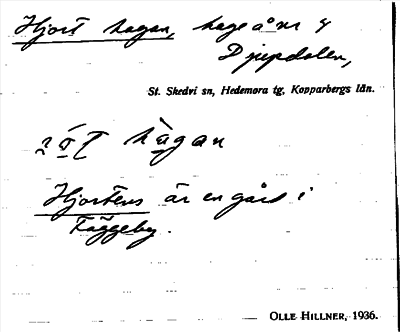 Hjort hagan, hage å nr 4
Djupdalen,
St. Skedvi sn, Hedemora tg, Kopparbergs län.
hagan
Hjortens är en gård i
Fäggeby.
OLLE HILLNER, 1936.